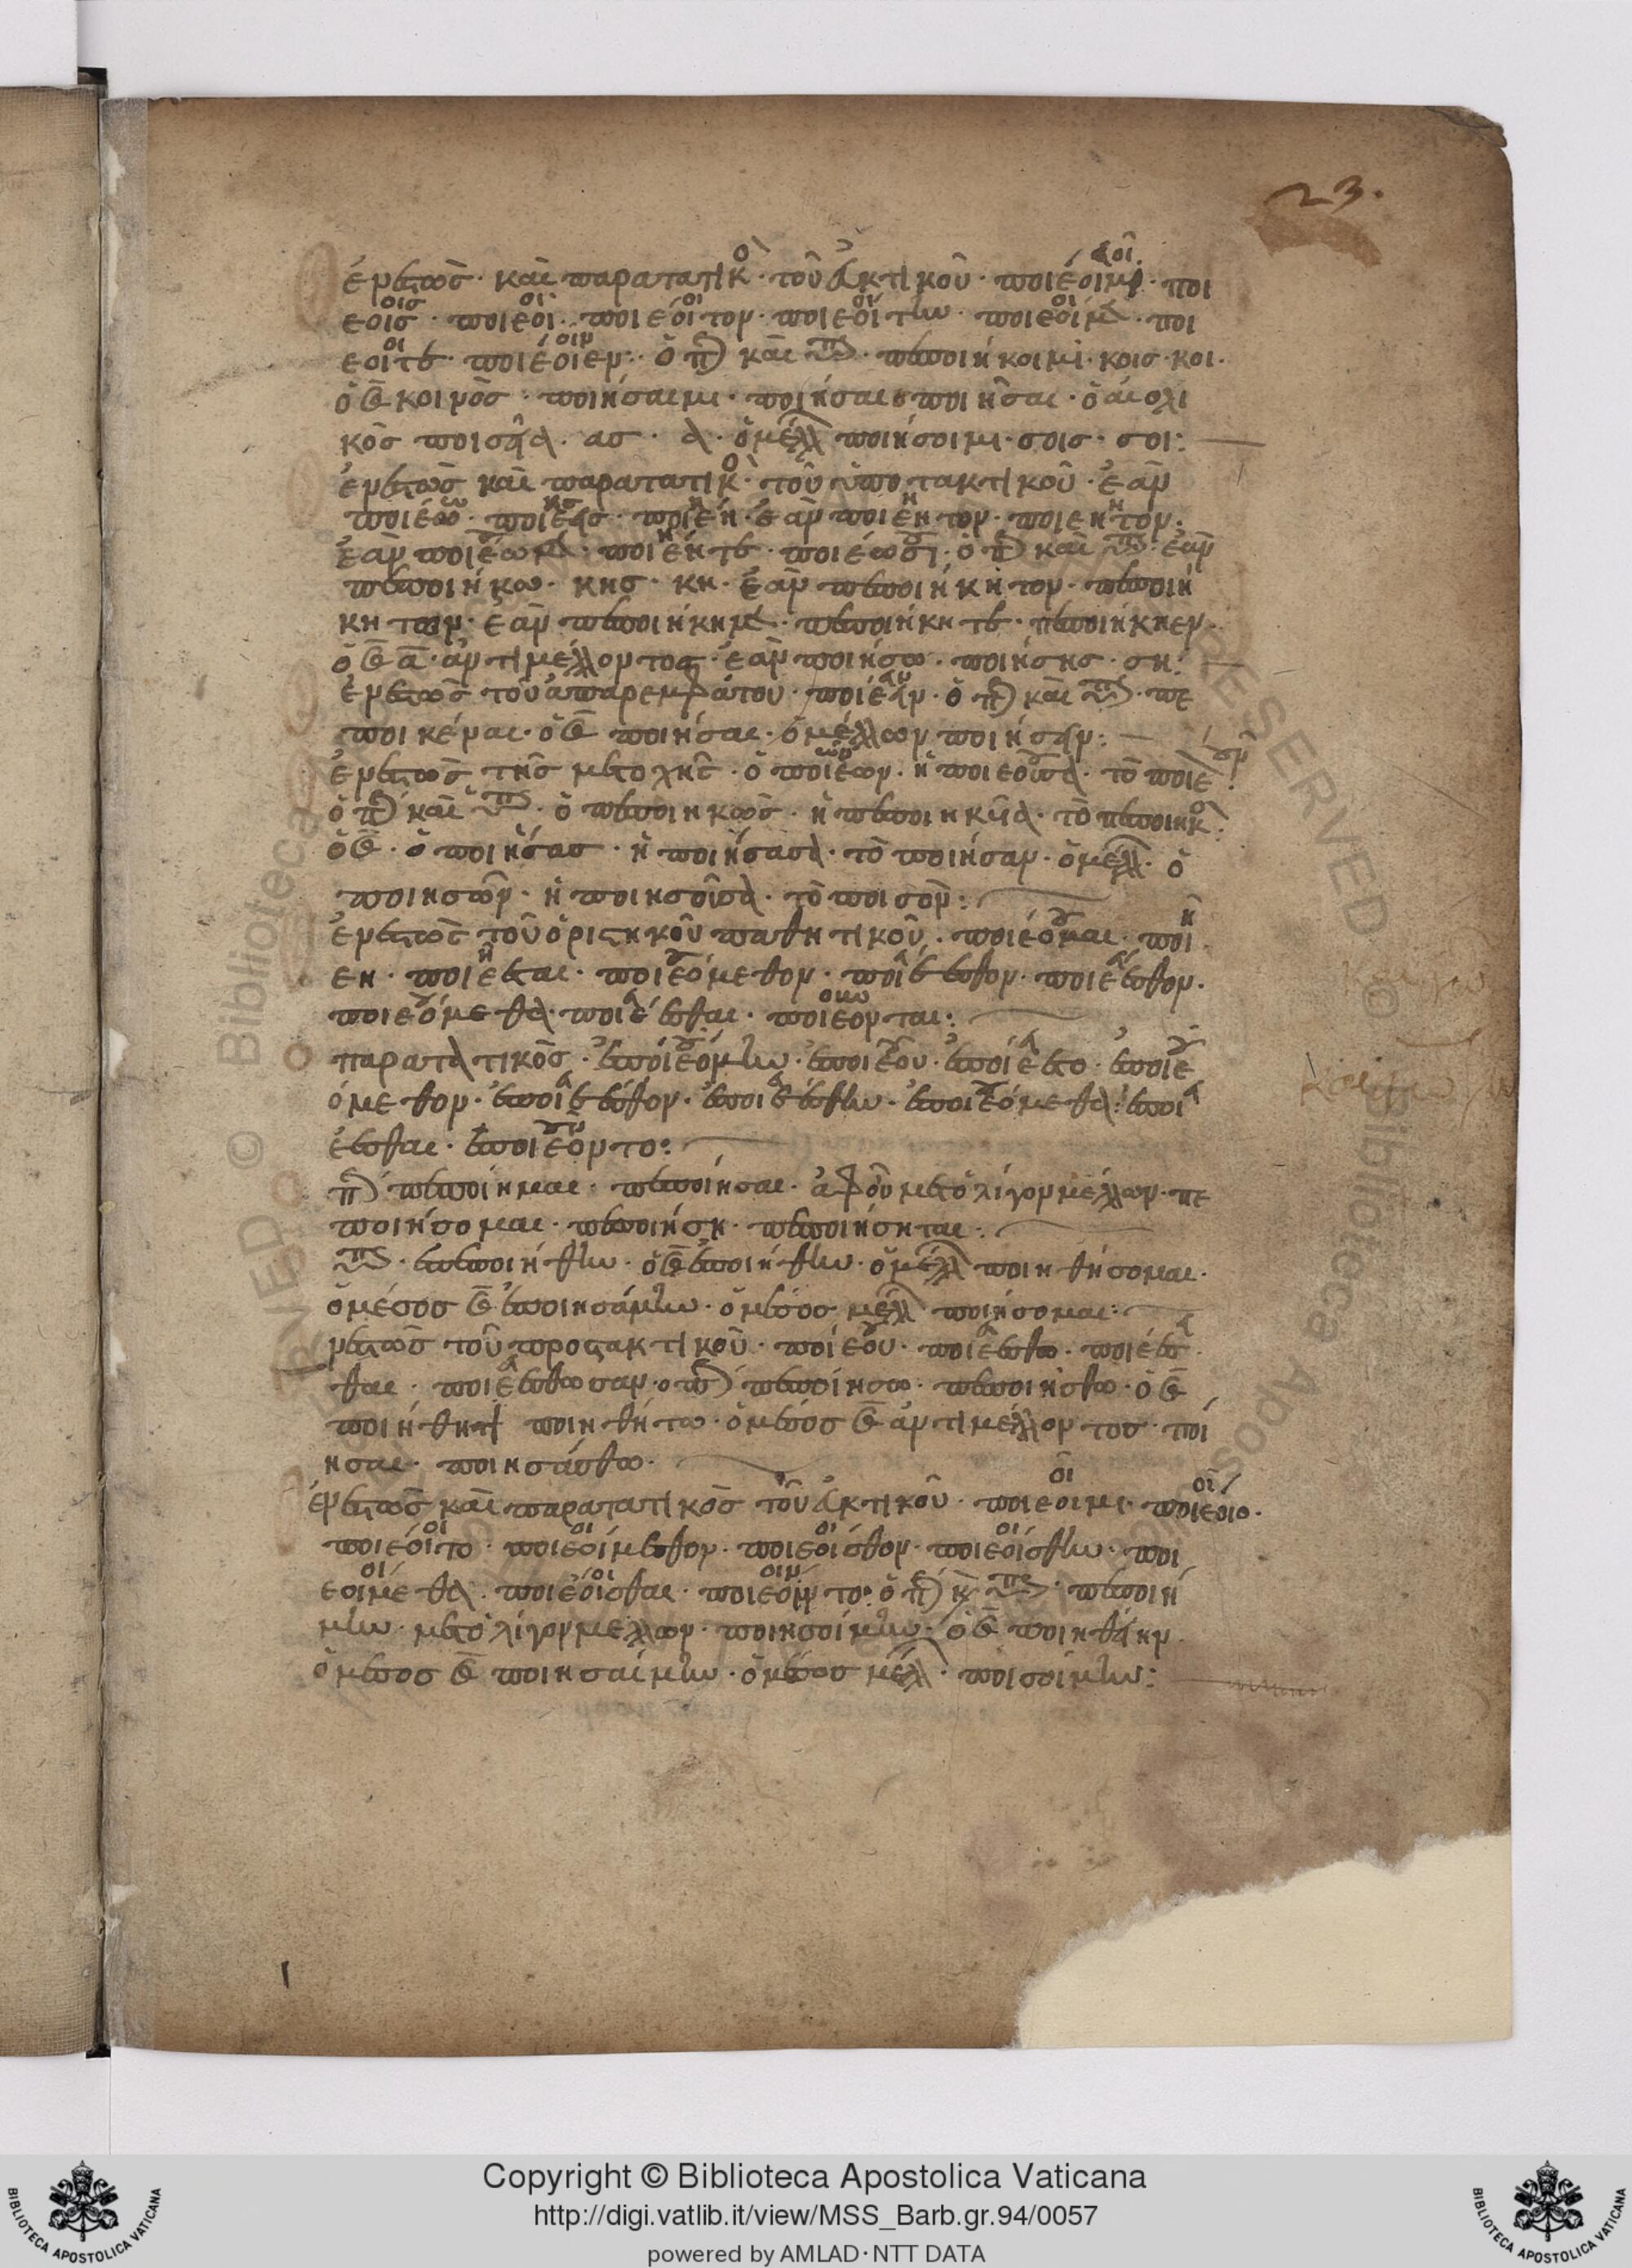 23.
ἐνεστὼς· καὶ παρατατικὸ· τοῦ εὐκτικοῦ· ποιέοιμι· ποι
εοις· ποιέοι· ποιέοιτον· ποιεοίτην· ποιέοιμεν· ποι
έοιτε· ποιέοιεν· ὁ π καὶ ὑπ· πεποιήκοιμι· κοις· κοι·
ποιήσαιμι· ποιήσαις ποιήσαι· ὁ αἰολι
κὸς ποισεια· ας· ὁ μέλλ ποιήσοιμι· σοις· σοι:
ἐνεστὼς καὶ παρατατικὸ· τοῦ ὑποτακτικοῦ· ἐὰν
ποιέω· ποιέης· ποιέη· ἐὰν ποιέητον· ποιέητον:
ἐὰν ποιέωμεν· ποιέητε· ποιέωσι· ὁ π καὶ ὑπ· ἐὰν
πεποιήκω· κης· κη· ἐὰν πεποιήκητον· πεποιή
κητον· ἐὰν πεποιήκημεν· πεποιήκητε· πεποιήκηεν·
ὁ α α· ἀντὶ μέλλοντος· ἐὰν ποιήσω· ποιήσης· ση:
ἐνεστὼς τοῦ ἀπαρεμφάτου· ποιέειν· ὁ π καὶ ὑπ· πε
ποικέναι· ποιήσαι· ὁ μέλλων ποιήσειν:
ἐνεστὼς τῆς μετοχῆς· ὁ ποιέων· ἡ ποιεοῦσα· τὸ ποιέ
ὁ π καὶ ὑπ· ὁ πεποιηκὼς· ἡ πεποιηκυῖα· τὸ πεποιηκὸ:
ὁ ποιήσας· ἡ ποιήσασα· τὸ ποιήσαν· ὁ μέλλ· ὁ
ποιησῶν· ἡ ποιησοῦσα· τὸ ποισον:
ἐνεστὼς τοῦ ὁριστικοῦ παθητικοῦ· ποιέομαι· ποι
εη· ποιέεται· ποιεόμεθον· ποιέεσθον· ποιέεσθον·
ποιεόμεθα· ποιέεσθαι· ποιέονται:
παρατατικὸς· ἐποιεόμην· ἐποιέου· ἐποιέετο· ἐποιε
όμεθον· ἐποιέεσθον· ἐποιεέσθην· ἐποιεόμεθα· ἐποι
έεσθαι· ἐποιέοντο:
π πεποίημαι· πεποίησαι· ἀφοῦ μετολίγον μέλλων· πε
ποιήσομαι· πεποιήση· πεποιήσηται:
ὑπ· ἐπεποιήθην· ἐποιήθην· ὁ μέλλ ποιηθήσομαι·
ὁ μέσος ἐποιησάμην· ὁ μέσος μέλλ ποιήσομαι:
νεστὼς τοῦ προστακτικοῦ· ποιέου· ποιεέσθω· ποιέεσ
θαι· ποιεέσθωσαν· ὁ π πεποίησω· πεποιήσθω·
ποιήθητι ποιηθήτω· ὁ μέσος ἀντὶ μέλλοντος· ποί
ησαι· ποιησάσθω·
ἐνεστὼς καὶ παρατατικὸς τοῦ εὐκτικοῦ· ποιεοιμι· ποιέοιο·
ποιέοιτο· ποιεοίμεθον· ποιέοισθον· ποιεοίσθην· ποι
εοίμεθα· ποιέοισθαι· ποιέοιντο· ὁ π κ ὑπ· πεποιή
μην· μετολίγον μέλλων· ποιησοίμην· ποιηθείην
ὁ μέσος ποιησαίμην· ὁ μέσος μέλλ· ποισοίμην:
Copyright © Biblioteca Apostolica Vaticana
http://digi.vatlib.it/view/MSS_Barb.gr.94/0057
powered by AMLAD·NTT DATA
BIBLIOTECA APOSTOLICA VATICANA
BIBLIOTECA APOSTOLICA VATICANA